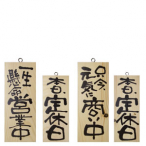 一生
懸命
営業中
本日定休日
只今
元気に
商い中
本日定休日